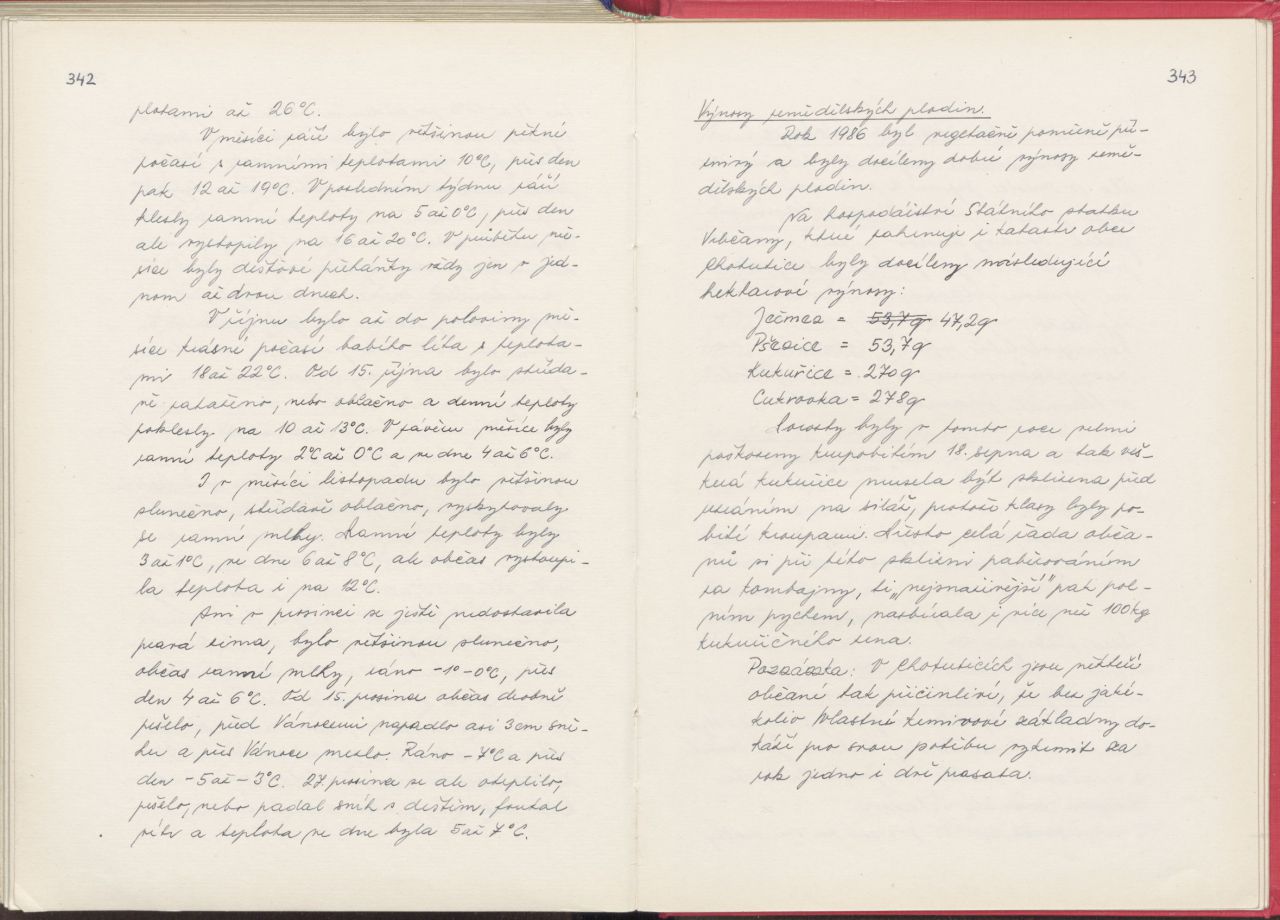 342
plotami až 26°C.
V měsíci září bylo většinou pěkné
počasí s ranními teplotami 10°C, přes den
pak 12 až 19°C. V posledním týdnu září
klesly ranní teploty na 5 až 0°C, přes den
ale vystoupily na 16 až 20°C. V průběhu mě-
síce byly dešťové přeháňky vždy jen v jed-
nom až dvou dnech.
V říjnu bylo až do poloviny mě-
síce krásné počasí babího léta s teplota-
mi 18 až 22°C. Od 15. října bylo střída-
vě zataženo, nebo oblačno a denní teploty
poklesly na 10 až 13°C. V závěru měsíce byly
ranní teploty 2°C až 0°C a ve dne 4 až 6°C.
I v měsíci listopadu bylo většinou
slunečno, střídavě oblačno, vyskytovaly
se ranní mlhy. Ranní teploty byly
3 až 1°C, ve dne 6 až 8°C, ale občas vystoupi-
la teplota i na 12°C.
Ani v prosinci se ještě nedostavila
pravá zima, bylo většinou slunečno,
občas ranní mlhy, ráno -1°-0°C, přes
den 4 až 6°C. Od 15. prosince občas drobně
pršelo, před Vánocemi napadlo asi 3cm sně-
hu a přes Vánoce mrzlo. Ráno -7°C a přes
den -5 až -3°C. 27. prosince se ale oteplilo,
pršelo, nebo padal sníh s deštěm, foukal
vítr a teplota ve dne byla 5 až 7°C.
343
Výnosy zemědělských plodin.
Rok 1986 byl vegetačně poměrně pří-
znivý a byly docíleny dobré výnosy země-
dělských plodin.
Na hospodářství Státního statku
Vrbčany, které zahrnuje i katastr obce
Chotutice byly docíleny následující
hektarové výnosy:
Ječmen = 53,7q 47,2q
Pšenice = 53,7q
Kukuřice = 270q
Cukrovka = 278q
Porosty byly v tomto roce velmi
poškozeny krupobitím 18. srpna a tak veš-
kerá kukuřice musela být sklizena před
zráním na siláž, protože klasy byly po-
bité kroupami. Přesto celá řada obča-
nů si při této sklizni paběrováním
za kombajny, ti „nejsnaživější" pak pol-
ním pychem, nasbírala i více než 100kg
kukuřičného zrna.
Poznámka: V Chotuticích jsou někteří
občané tak přičinliví, že bez jaké-
koliv vlastní krmivové základny do-
káží pro svou potřebu vykrmit za
rok jedno i dvě prasata.